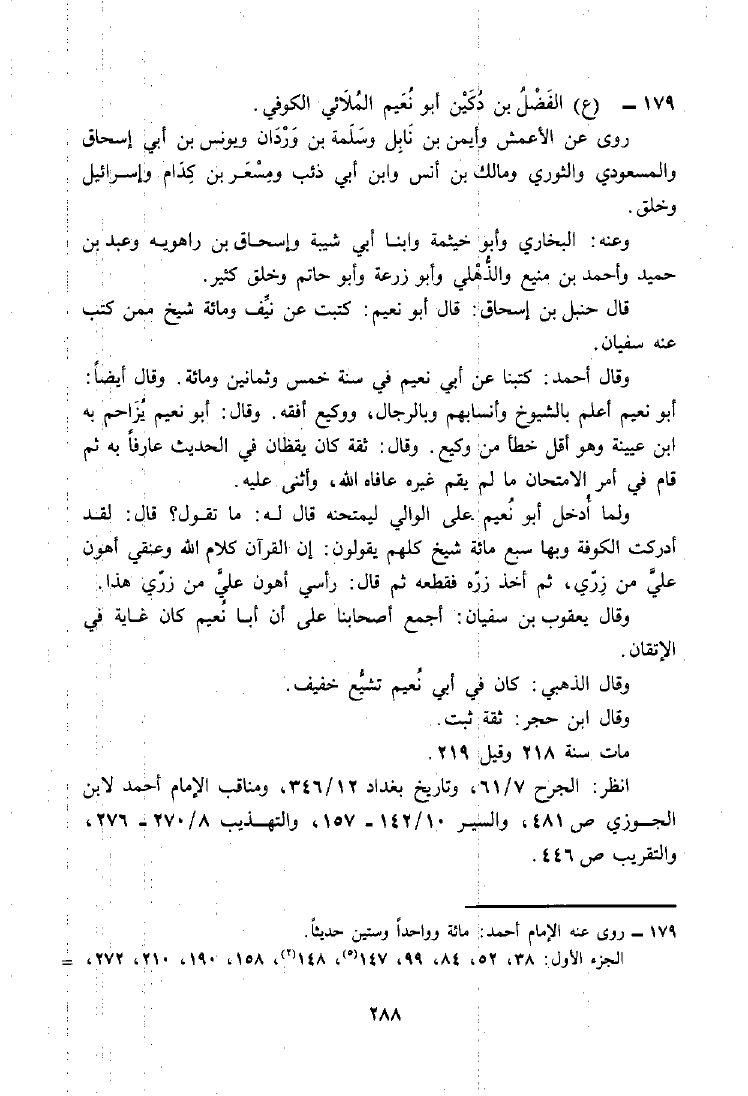 ١٧٩ ــ (ع) الفَضْلُ بن دُكَيْن أبو نُعَيم المُلَائي الكوفي.
روى عن الأعمش وأيمن بن نَابِل وسَلَمة بن وَرْدَان ويونس بن أبي إسحاق
والمسعودي والثوري ومالك بن أنس وابن أبي ذئب ومِسْعَـر بن كِدَام وإسـرائيل
وخلق.
وعنه: البخاري وأبو خيثمة وابنـا أبي شيبة وإسحـاق بن راهويـه وعبد بن
حميد وأحمد بن منيع والذُّهْلي وأبو زرعة وأبو حاتم وخلق كثير.
قال حنبل بن إسحاق: قال أبو نعيم: كتبت عن نيِّف ومائة شيخ ممن كتب
عنه سفيان.
وقال أحمد: كتبنا عن أبي نعيم في سنة خمس وثمانين ومائة. وقال أيضاً:
أبو نعيم أعلم بالشيوخ وأنسابهم وبالرجال، ووكيع أفقه. وقال: أبو نعيم يُزَاحم به
ابن عيينة وهو أقل خطأ من وكيع. وقال: ثقة كان يقظان في الحديث عارفاً به ثم
قام في أمر الامتحان ما لم يقم غيره عافاه الله، وأثنى عليه.
ولما أُدخل أبو نُعيم على الوالي ليمتحنه قال لـه: ما تقـول؟ قال: لقـد
أدركت الكوفة وبها سبع مائة شيخ كلهم يقولون: إن القرآن كلام الله وعنقي أهون
عليَّ من زِرّي، ثم أخذ زرّه فقطعه ثم قال: رأسي أهون عليَّ من زرّي هذا.
وقال يعقوب بن سفيان: أجمع أصحابنا على أن أبـا نُعيم كان غـاية في
الإتقان.
وقال الذهبي: كان في أبي نُعيم تشيُّع خفيف.
وقال ابن حجر: ثقة ثبت.
مات سنة ٢١٨ وقيل ٢١٩.
انظر: الجرح ٦١/٧، وتاريخ بغداد ٣٤٦/١٢، ومناقب الإمام أحمد لابن
الجـوزي ص ٤٨١، والسيـر ١٤٢/١٠ ـ ١٥٧، والتهـذيب ٢٧٠/٨ ـ ٢٧٦،
والتقريب ص ٤٤٦.
١٧٩ ــ روى عنه الإمام أحمد: مائة وواحداً وستين حديثاً.
الجزء الأول: ٣٨، ٥٢، ٨٤، ٩٩، ١٤٧(٥)، ١٤٨(٢)، ١٥٨، ١٩٠، ٢١٠، ٢٧٢، =
٢٨٨